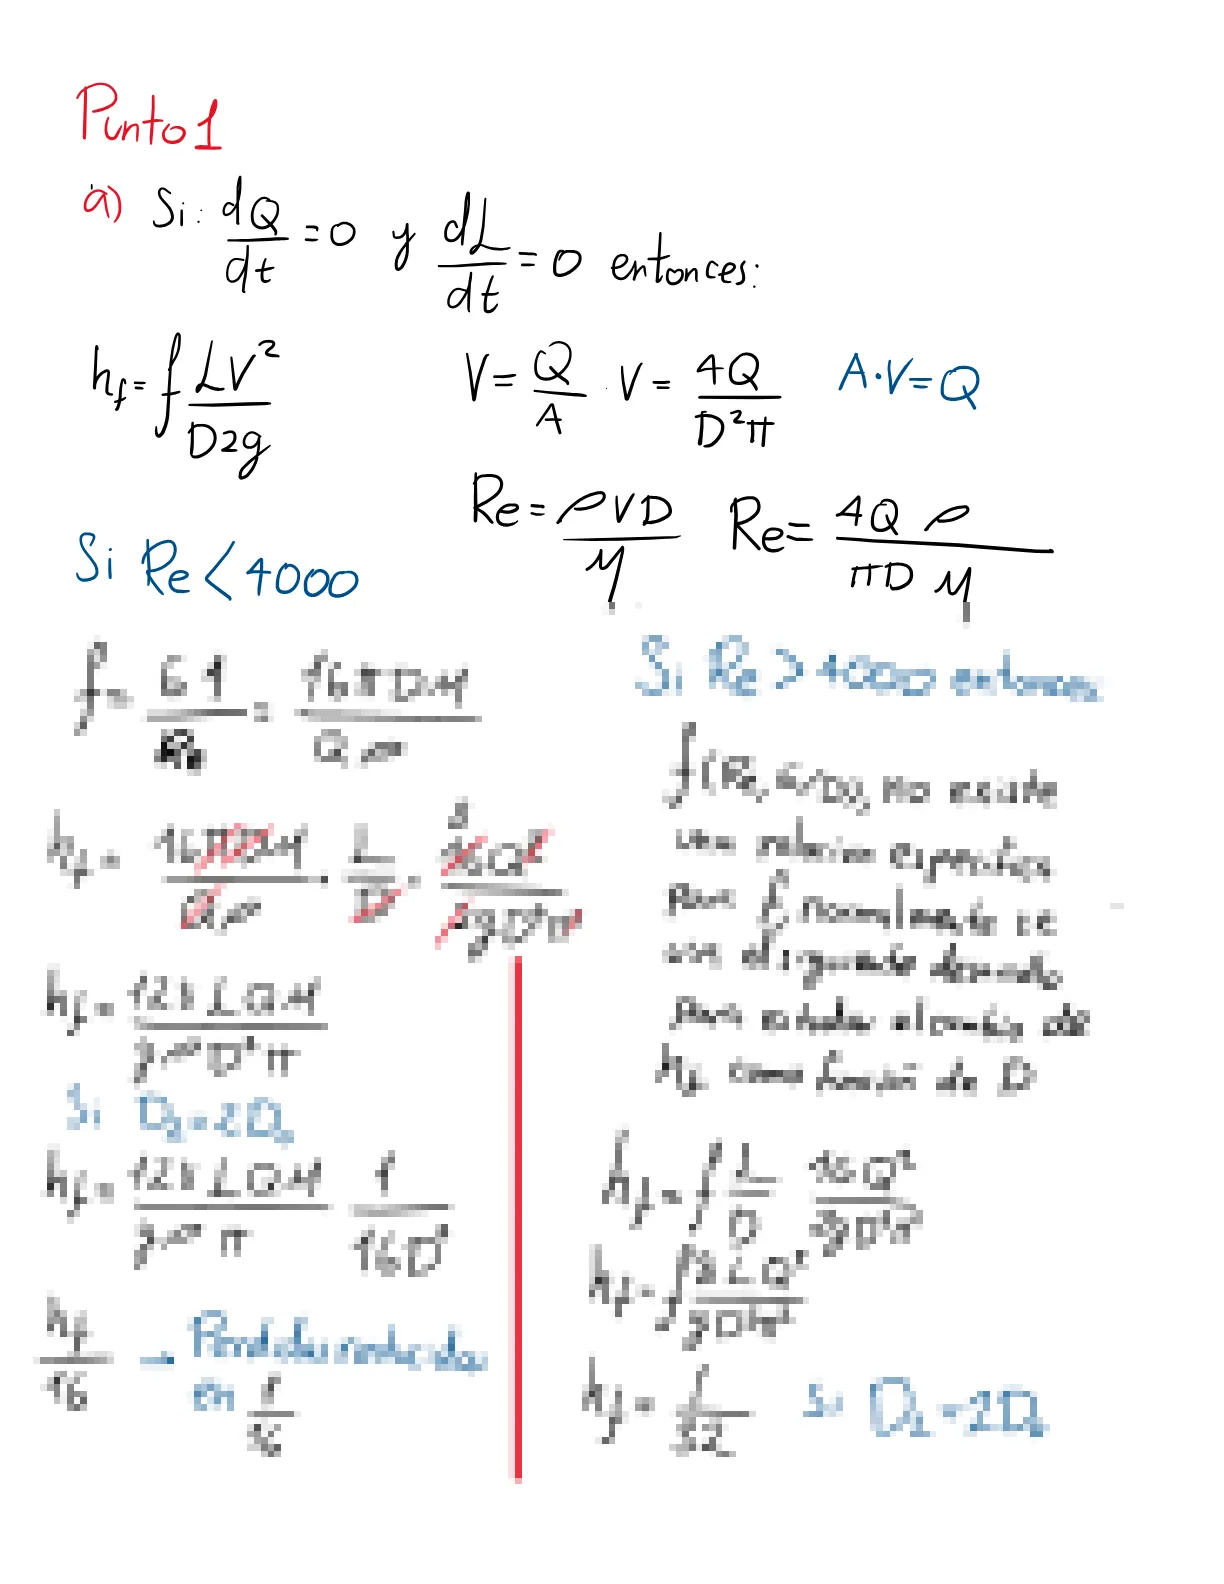 Punto 1
a) Si: dQ/dt = 0 y dL/dt = 0 entonces:
h_f = f LV²/D2g
V = Q/A . V = 4Q/D²π
A·V = Q
Re = ρVD/μ Re = 4Qρ/πDμ
Si Re < 4000
f = 64/Re = 16πDμ/Qρ
h_f = 16πDμ/Qρ · L/D ·
h_f = 128LQμ/gρD⁴π
Si D₂ = 2D
h_f = 128LQμ/gρπ 1/16D⁴
h_f/16 → Perdidas reducidas
en 1/16
Si Re > 4000 entonces
f(Re, no existe
una relacion especifica
para f, normalmente se
usa el siguiente desarrollo
para estudiar el cambio de
h_f como función de D
h_f = f L/D 16Q²/2gD⁴π²
h_f = f 8LQ²/gD⁵π²
h_f = f/32 Si D₂ = 2D